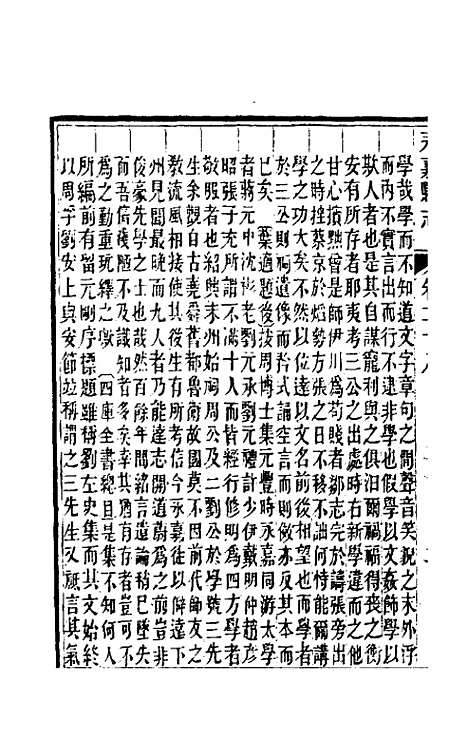 永嘉縣志　卷二十八
學哉學而不知道文字章句之間聲音笑貌之末外浮
而内不實言出而行不逮非學也假學以文姦飾學以
欺人者也是其自謀寵利與之俱汩爾禍福得喪之衡
安有所存者耶夷考三公之出處時右新學違而之他
甘心擯黜曾是師伊川爲苟賤者鄒志完於讒張旁出
之時挫蔡京於焰勢方張之日不移不詘何恃能爾講
學之功大矣不然以位達以文名前後相望也而學者
於三公則祠遺像而矜式誦空言而則傚亦反其本而
已矣　葉適題後　按周博士集元豐時永嘉同游太學
者蔣元中沈彬老劉元承劉元禮許少伊戴明仲趙彦
昭張子充所謂不滿十人而皆經行修明爲四方學者
敬服者也紹興末州始祠周公及二劉公於學號三先
生余觀自古堯舜舊都魯衛故國莫不因前代師友之
教流風相接使其後生有所考信今永嘉徒以僻遠下
州見聞最晚而九人者乃能達志開道蔚爲之前豈非
俊豪先學之士也哉然百餘年間緒言遺論稍已墜失
而吾儕淺陋不及識知者多矣幸其猶有存者豈可不
爲之勤重玩繹之歟　四庫全書總目是集不知何人
所編前有留元剛序標題雖稱劉左史集而其文始終
以周孚劉安上與安節竝稱謂之三先生又祇言其氣